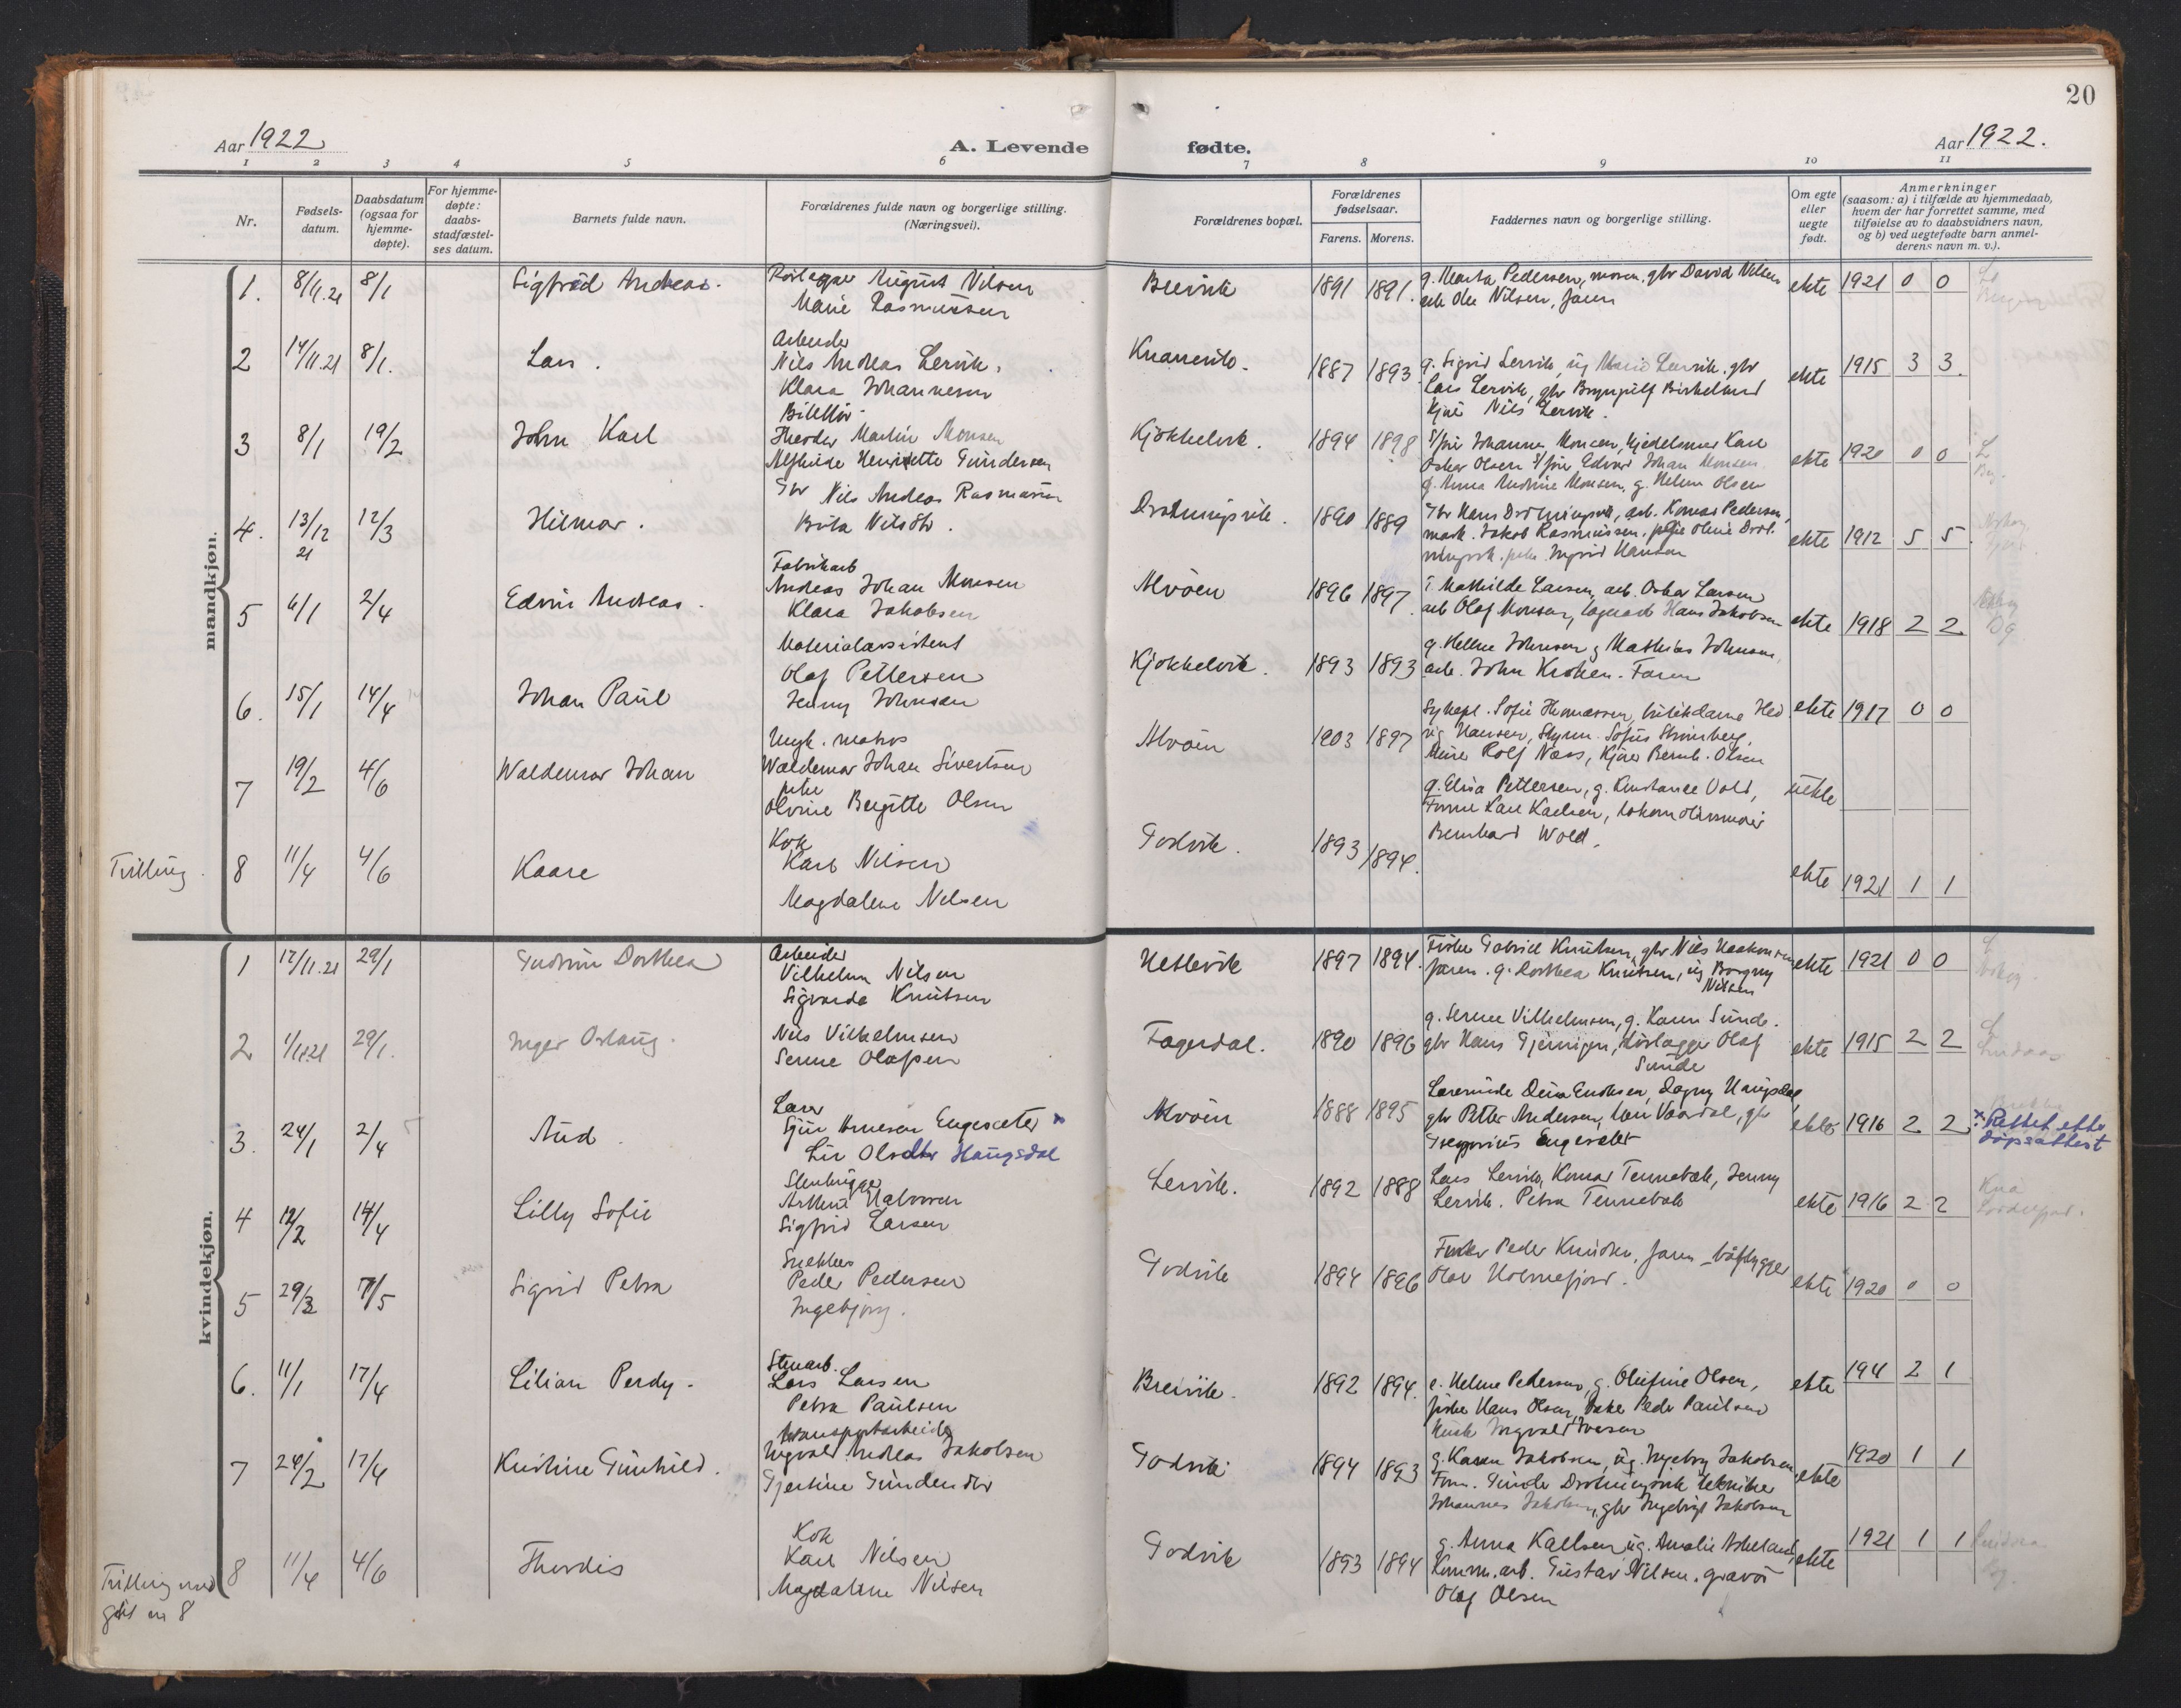 20
Aar 1922
A. Levende
fødte.
Aar 1922.
1 2 3 4 5 6 7 8 9 10 11
Nr.
Fødsels-
datum.
Daabsdatum
(ogsaa for
hjemme-
døpte).
For hjemme-
døpte:
daabs-
stadfæstel-
ses datum.
Barnets fulde navn.
Forældrenes fulde navn og borgerlige stilling.
(Næringsvei).
Forældrenes bopæl.
Forældrenes
fødselsaar.
Farens. Morens.
Faddernes navn og borgerlige stilling.
Om egte
eller
uegte
født.
Anmerkninger
(saasom: a) i tilfælde av hjemmedaab,
hvem der har forrettet samme, med
tilføielse av to daabsvidners navn,
og b) ved uegtefødte barn anmel-
derens navn m. v.).
mandkjøn.
1. 8/11.21 8/1 Sigfred Andreas. August Nilsen
Marie Rasmussen
Breivik 1891 1891. g. Marta Pedersen, moren, gbr David Nilsen
arb Ole Nilsen, faren
ekte 1921 0 0
2 14/11.21 8/1. Lars. Arbeider
Nils Andreas Lervik.
Klara Johannesen
1887 1893 g. Sigrid Lervik, ug Marie Lervik. gbr
Lars Lervik, gbr Brynjulf Birkelund
Nils Lervik.
ekte 1915 3 3.
3 8/1 19/2 John Karl
Theodor Martin Monsen
Henriette Gundersen
Kjøkkelvik. 1894 1898 Johannes Monsen, Karl
Oskar Olsen Edvard Johan Monsen
g. Anna Andrine Monsen, g. Helen Olsen
ekte 1920 0 0
4. 13/12 21 12/3 Hilmar. Gbr Nils Andreas Rasmussen
Brita Nilsdtr.
Drotningsvik. 1890 1889 Gbr Hans Drotningsvik, arb. Konrad Pedersen,
Jakob Rasmussen, pike Oline Drot-
ningsvik. pike Ingrid Hansen
ekte 1912 5 5.
5 6/1 2/4 Edvin Andreas. Fabrikarb
Andreas Johan Monsen
Klara Jakobsen
Alvøen 1896 1897. Mathilde Larsen, arb. Oskar Larsen
arb Olaf Monsen, lagerarb Hans Jakobsen
ekte 1918 2 2
6. 15/1 14/4 Johan Paul Materialassistent
Olaf Pettersen
Jenny Johnsen
Kjøkkelvik. 1893 1893 g. Helene Johnsen g Mathias Johnsen
arb. John Kroken. Faren
ekte 1917 0 0
7 19/2 4/6 Waldemar Johan Ungk. matros
Waldemar Johan Sivertsen
pike
Olvine Bergitte Olsen
Alvøen 1903 1897 Sofie Thomassen, butikdame Hed
vig Hansen, Styrm. Sofus Strømberg,
Rolf Næss, Kjører Bernh. Olsen
uekte
Trilling. 8 11/4 4/6 Kaare Kok
Karl Nilsen
Magdalene Nilsen
Godvik. 1893 1894. g. Elisa Pettersen, g. Konstance Vold,
Karl Karlsen,
Bernhard Wold.
ekte 1921 1 1
kvindekjøn.
1 12/11.21 29/1 Gudrun Dorthea Arbeider
Vilhelm Nilsen
Sigvarda Knutsen
Hetlevik 1897 1894. Fisker Gabriel Knutsen, gbr Nils Haakonsen
faren. g. Dorthea Knutsen, ug Borgny
Nilsen
ekte 1921 0 0
2 29/1. Inger Oslaug. Nils Vilhelmsen
Serine Olafsen
Fagerdal. 1890 1896 g. Serine Vilhelmsen, g. Karen Sunde.
gbr Hans Gjerningen, Olaf
Sunde
ekte 1915 2 2
3. 24/1 2/4 Aud. Lærer
Sjur Arnesen Engesæter x
Liv Olsdtr Haugsdal
Alvøen 1888 1895 Lærerinde Dina Eriksen, Dagny Haugsdal
gbr Petter Andersen, Vaardal, gbr
Engesæter
ekte 1916 2 2 x: Rettet efter
dåpsattest
4 12/2 14/4 Lilly Sofie Stenhugger
Arthur Halvorsen
Sigfrid Larsen
Lervik. 1892 1888 Lars Lervik, Konrad Tennebek, Jenny
Lervik. Petra Tennebek
ekte 1916 2 2
5 29/3 7/5 Sigrid Petra Snekker
Peder Pedersen
Ingebjørg.
Godvik 1894 1896 Fisker Peder Knudsen, faren, båtbygger
Olav Holmefjord.
ekte 1920 0 0
6. 11/1 17/4 Lilian Perdy. Stenarb.
Lars Larsen
Petra Paulsen
Breivik. 1892 1894. Helene Pedersen, g. Olufine Olsen,
fisker Hans Olsen, Peder Paulsen
Ingvald Iversen
ekte 1941 2 1
7 24/2 17/4 Kristine Gunhild. transportarbeider
Ingvald Andreas Jakobsen
Gjertine Gundersdtr
Godvik 1894 1893 g. Karen Jakobsen, ug. Ingeborg Jakobsen
Form. Gunder Drotningsvik tekniker
Johannes Jakobsen, gbr Ingebrigt Jakobsen
ekte 1920 1 1
Trilling med
gut nr 8
8 11/4 4/6 Thordis Kok
Karl Nilsen
Magdalene Nilsen
Godvik 1893 1894 g. Anna Karlsen ug. Amalie Askeland,
Komm. arb. Gustav Nilsen. gravør
Olaf Olsen
ekte 1921 1 1